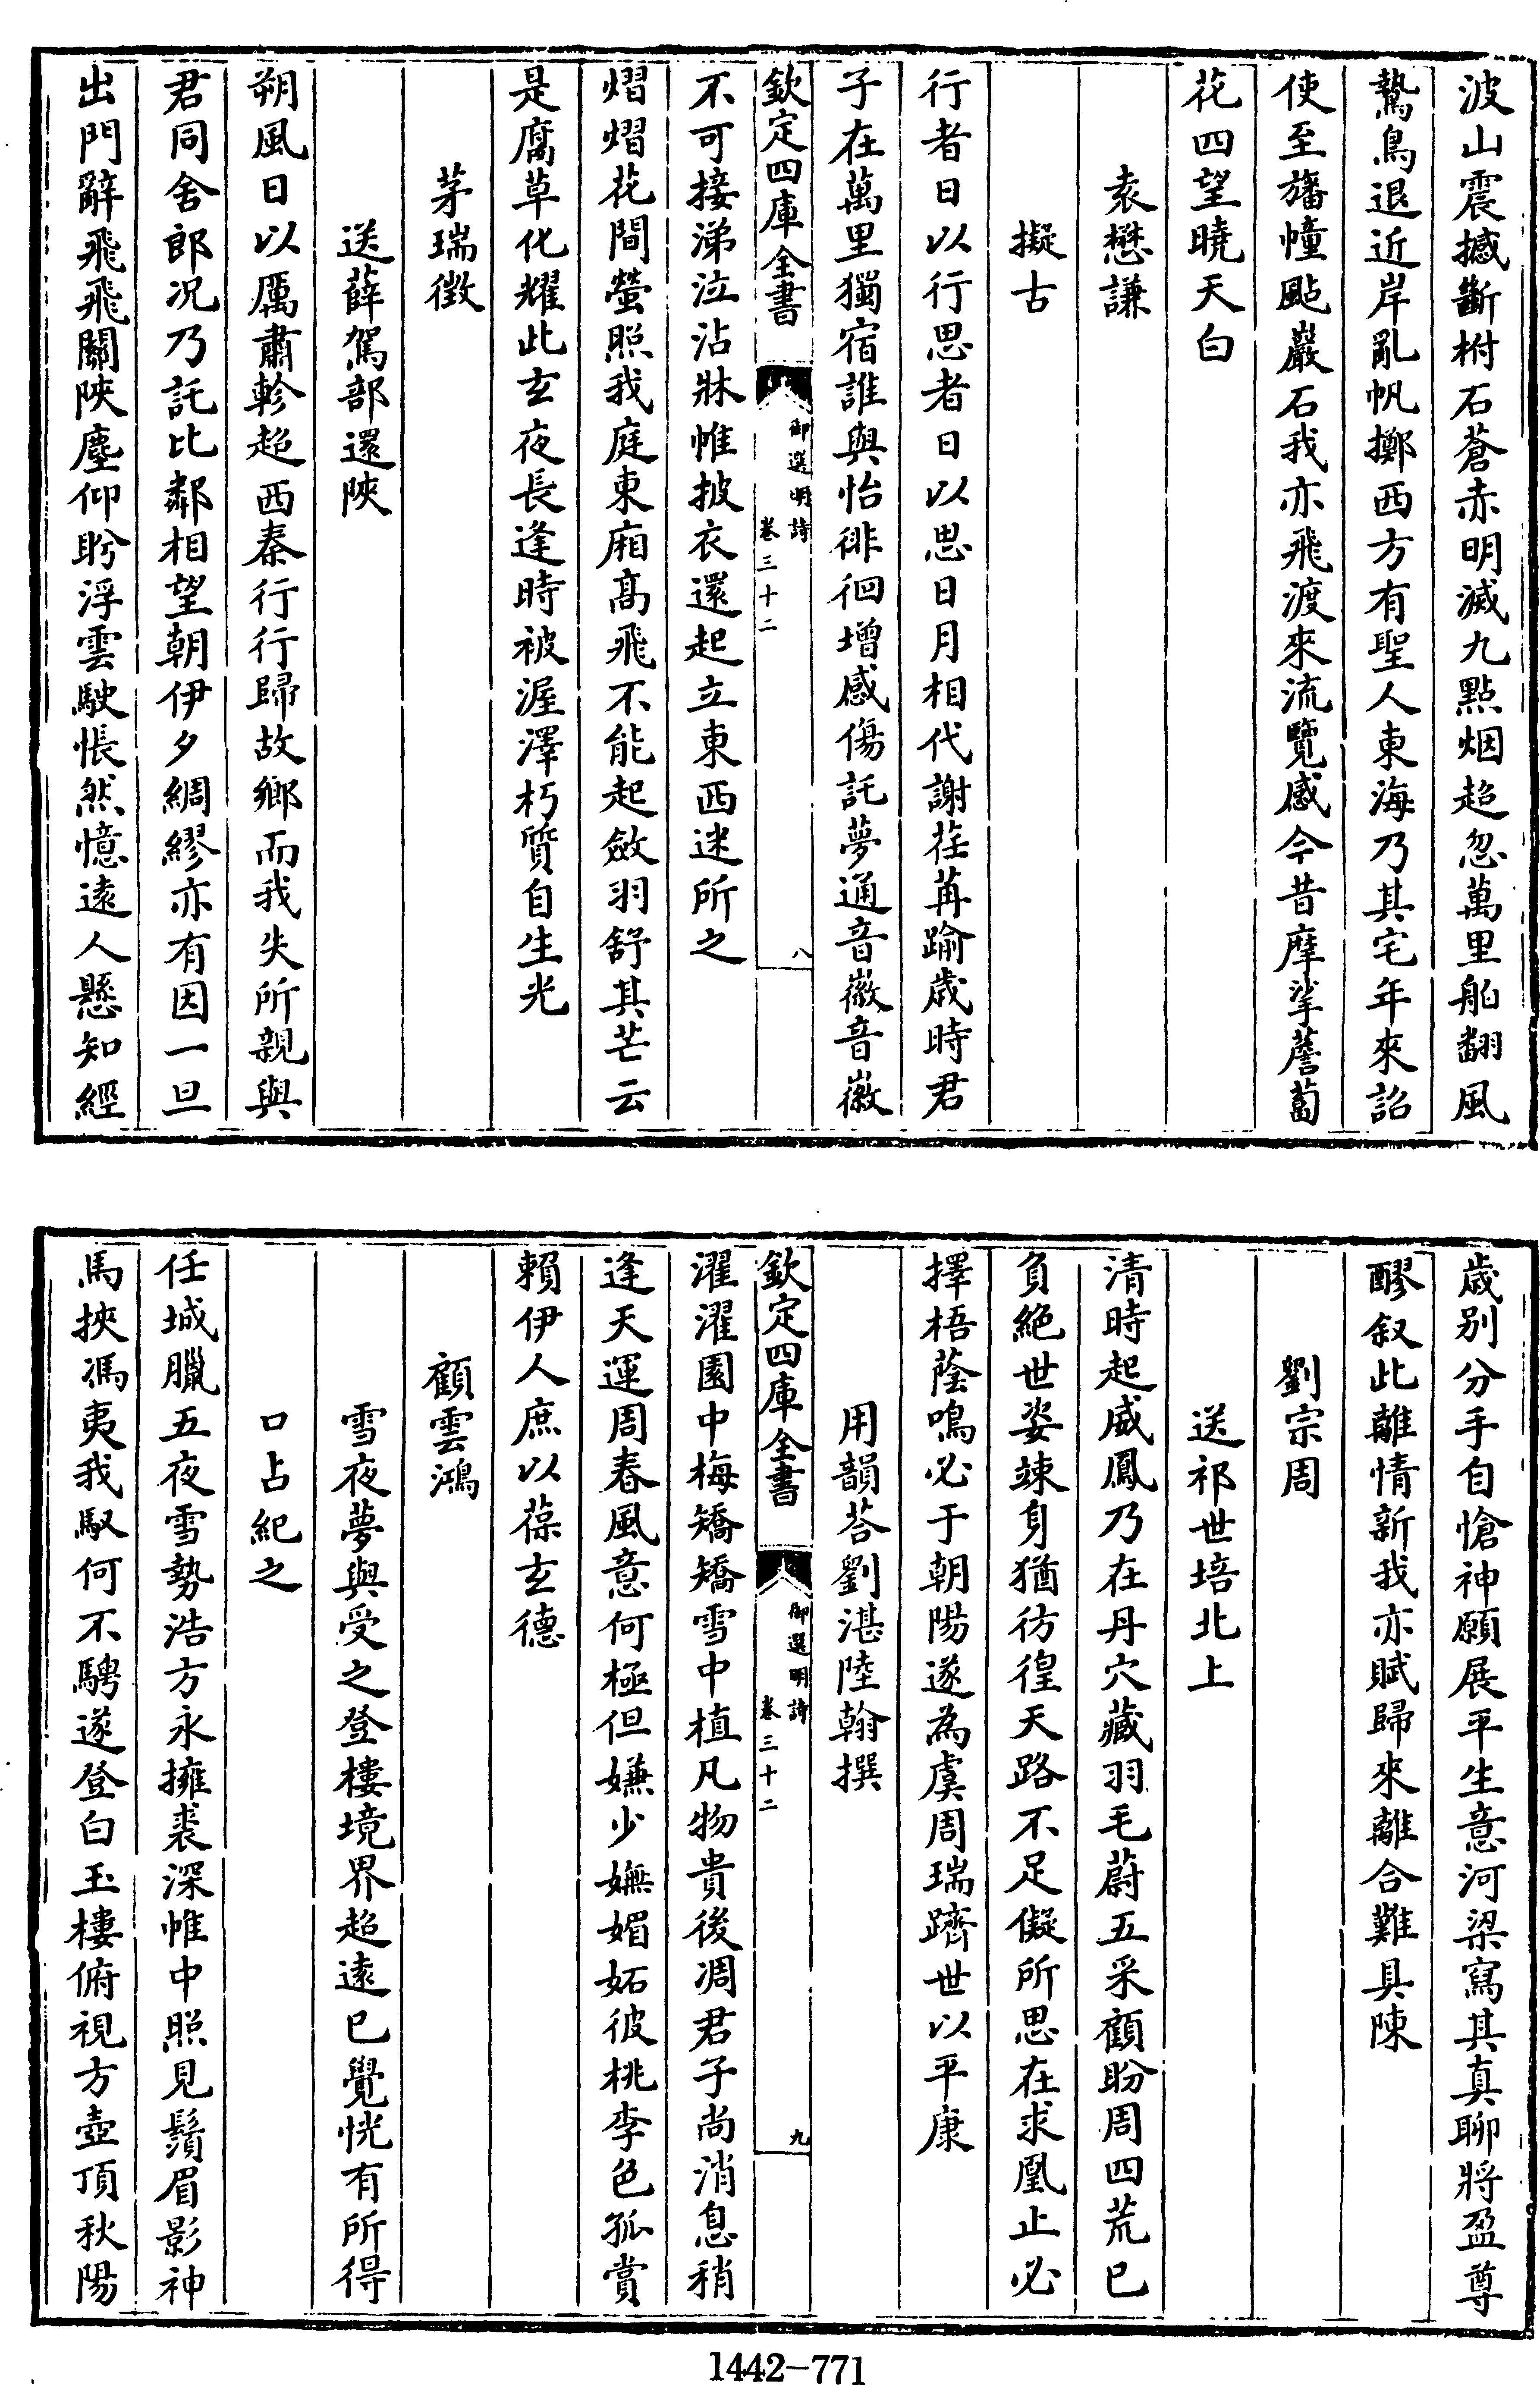 波山震撼斷柎石蒼赤明滅九點烟超忽萬里舶翻風
鷙鳥退近岸亂帆擲西方有聖人東海乃其宅年來詔
使至旛幢颭巖石我亦飛渡來流覽感今昔摩挲薝蔔
花四望曉天白
袁懋謙
擬古
行者日以行思者日以思日月相代謝荏苒踰歲時君
子在萬里獨宿誰與怡徘徊增感傷託夢通音徽音徽
欽定四庫全書
御選明詩
卷三十二
八
不可接涕泣沾牀帷披衣還起立東西迷所之
熠熠花間螢照我庭東廂高飛不能起斂羽舒其芒云
是腐草化耀此玄夜長逢時被渥澤朽質自生光
茅瑞徵
送薛駕部還陝
朔風日以厲肅軫超西秦行行歸故鄉而我失所親與
君同舍郎况乃託比鄰相望朝伊夕綢繆亦有因一旦
出門辭飛飛關陝塵仰盻浮雲駛悵然憶遠人懸知經
歲别分手自愴神願展平生意河梁寫其真聊將盈尊
醪叙此離情新我亦賦歸來離合難具陳
劉宗周
送祁世培北上
清時起威鳳乃在丹穴藏羽毛蔚五采顧盼周四荒已
負絶世姿竦身猶彷徨天路不足儗所思在求凰止必
擇梧蔭鳴必于朝陽遂為虞周瑞躋世以平康
用韻荅劉湛陸翰撰
欽定四庫全書
御選明詩
卷三十二
九
濯濯園中梅矯矯雪中植凡物貴後凋君子尚消息稍
逢天運周春風意何極但嫌少嫵媚妬彼桃李色孤賞
賴伊人庶以葆玄德
顧雲鴻
雪夜夢與受之登樓境界超遠已覺恍有所得
口占紀之
任城臘五夜雪勢浩方永擁裘深帷中照見鬚眉影神
馬挾馮夷我馭何不騁遂登白玉樓俯視方壺頂秋陽
1442-771